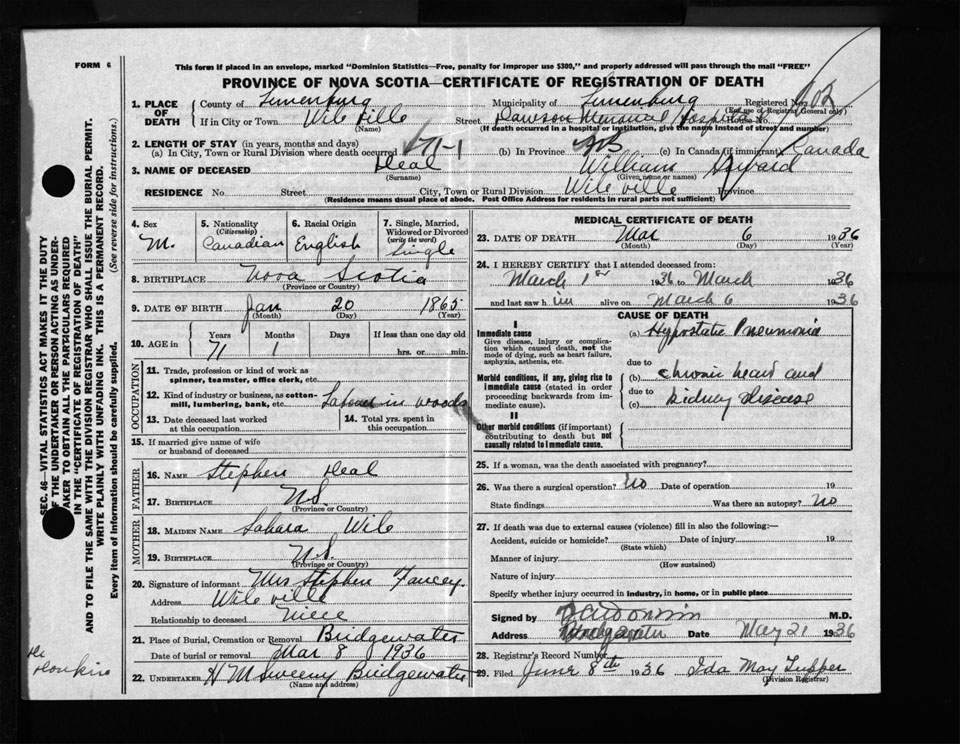 FORM 6
This form if placed in an envelope, marked "Dominion Statistics—Free, penalty for improper use $300," and properly addressed will pass through the mail "FREE"
PROVINCE OF NOVA SCOTIA—CERTIFICATE OF REGISTRATION OF DEATH
1. PLACE OF DEATH County of Lunenburg Municipality of Lunenburg Registered No.
(For use of Registrar General only)
If in City or Town Wileville Street Dawson Memorial Hospital House No.
(Name) (If death occurred in a hospital or institution, give the name instead of street and number)
2. LENGTH OF STAY (in years, months and days)
(a) In City, Town or Rural Division where death occurred 71-1 (b) In Province (c) In Canada (if immigrant) Canada
3. NAME OF DECEASED Heal William
(Surname) (Given name or names)
RESIDENCE No. Street City, Town or Rural Division Wileville Province
(Residence means usual place of abode. Post Office Address for residents in rural parts not sufficient)
4. Sex M.
5. Nationality (Citizenship) Canadian
6. Racial Origin English
7. Single, Married, Widowed or Divorced (write the word) Single
8. BIRTHPLACE Nova Scotia
(Province or Country)
9. DATE OF BIRTH Jan 20 1865
(Month) (Day) (Year)
10. AGE in Years Months Days If less than one day old
71 1 hrs. or min.
OCCUPATION
11. Trade, profession or kind of work as spinner, teamster, office clerk, etc.
12. Kind of industry or business, as cotton-mill, lumbering, bank, etc. in woods
13. Date deceased last worked at this occupation
14. Total yrs. spent in this occupation
15. If married give name of wife or husband of deceased
FATHER
16. NAME Stephen Heal
17. BIRTHPLACE N.S.
(Province or Country)
MOTHER
18. MAIDEN NAME Sahara Wile
19. BIRTHPLACE N.S.
(Province or Country)
20. Signature of informant Mrs Stephen Fancey.
Address Wileville
Relationship to deceased Niece
21. Place of Burial, Cremation or Removal Bridgewater
Date of burial or removal Mar 8 1936
22. UNDERTAKER H M Sweeny Bridgewater
(Name and address)
MEDICAL CERTIFICATE OF DEATH
23. DATE OF DEATH Mar 6 1936
(Month) (Day) (Year)
24. I HEREBY CERTIFY that I attended deceased from:
March 1st 1936 to March 1936
and last saw him alive on March 6 1936
CAUSE OF DEATH
I
Immediate cause
Give disease, injury or complication which caused death, not the mode of dying, such as heart failure, asphyxia, asthenia, etc.
(a) Hypostatic Pneumonia
due to
Morbid conditions, if any, giving rise to immediate cause (stated in order proceeding backwards from immediate cause).
(b) chronic heart and
due to
(c) kidney disease
II
Other morbid conditions (if important) contributing to death but not causally related to immediate cause.
25. If a woman, was the death associated with pregnancy?
26. Was there a surgical operation? No Date of operation 19
State findings Was there an autopsy? No
27. If death was due to external causes (violence) fill in also the following:—
Accident, suicide or homicide? Date of injury 19
(State which)
Manner of injury
(How sustained)
Nature of injury
Specify whether injury occurred in industry, in home, or in public place
Signed by M.D.
Address Date May 21 1936
28. Registrar's Record Number
29. Filed June 8th 1936 Ida May Tupper
(Division Registrar)
SEC. 46—VITAL STATISTICS ACT MAKES IT THE DUTY
OF THE UNDERTAKER OR PERSON ACTING AS UNDER-
TAKER TO OBTAIN ALL THE PARTICULARS REQUIRED
IN THE "CERTIFICATE OF REGISTRATION OF DEATH"
AND TO FILE THE SAME WITH THE DIVISION REGISTRAR WHO SHALL ISSUE THE BURIAL PERMIT.
WRITE PLAINLY WITH UNFADING INK. THIS IS A PERMANENT RECORD.
Every item of information should be carefully supplied. (See reverse side for instructions.)